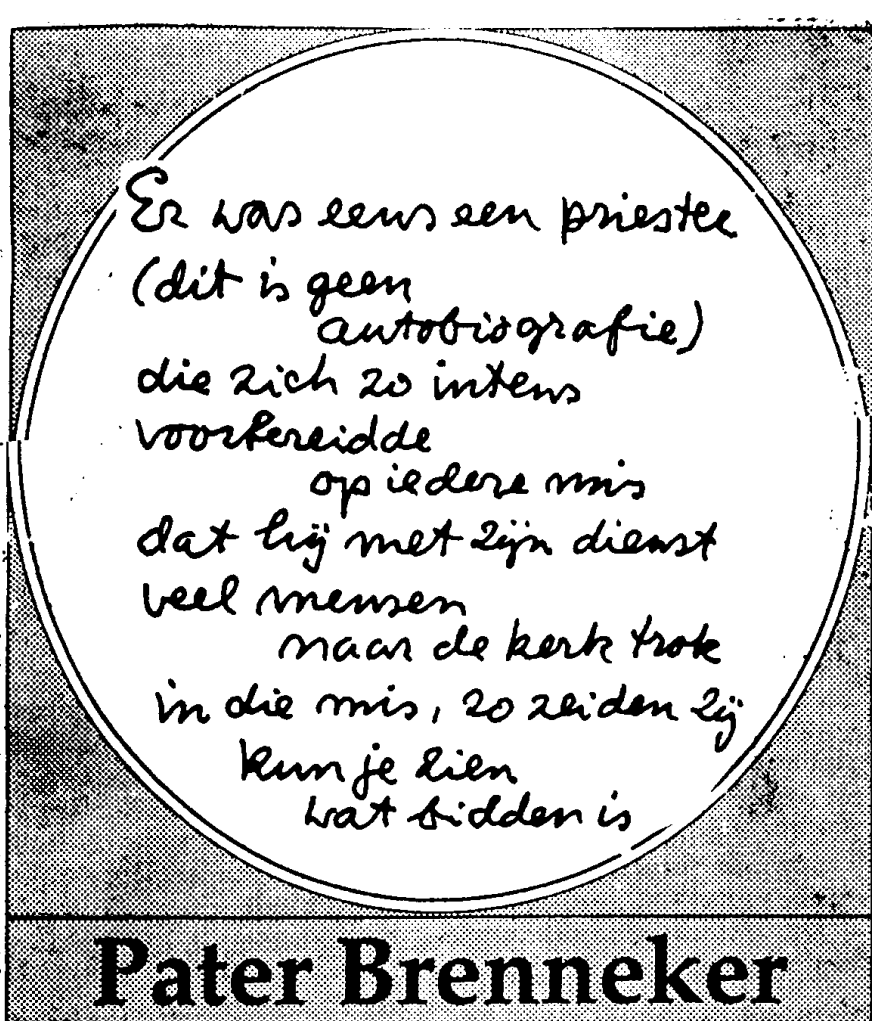 Er was eens een priester
(dit is geen
autobiografie)
die zich zo intens
voorbereidde
op iedere mis
dat hij met zijn dienst
veel mensen
naar de kerk trok
in die mis, zo zeiden zij
kun je zien
wat bidden is
Pater Brenneker